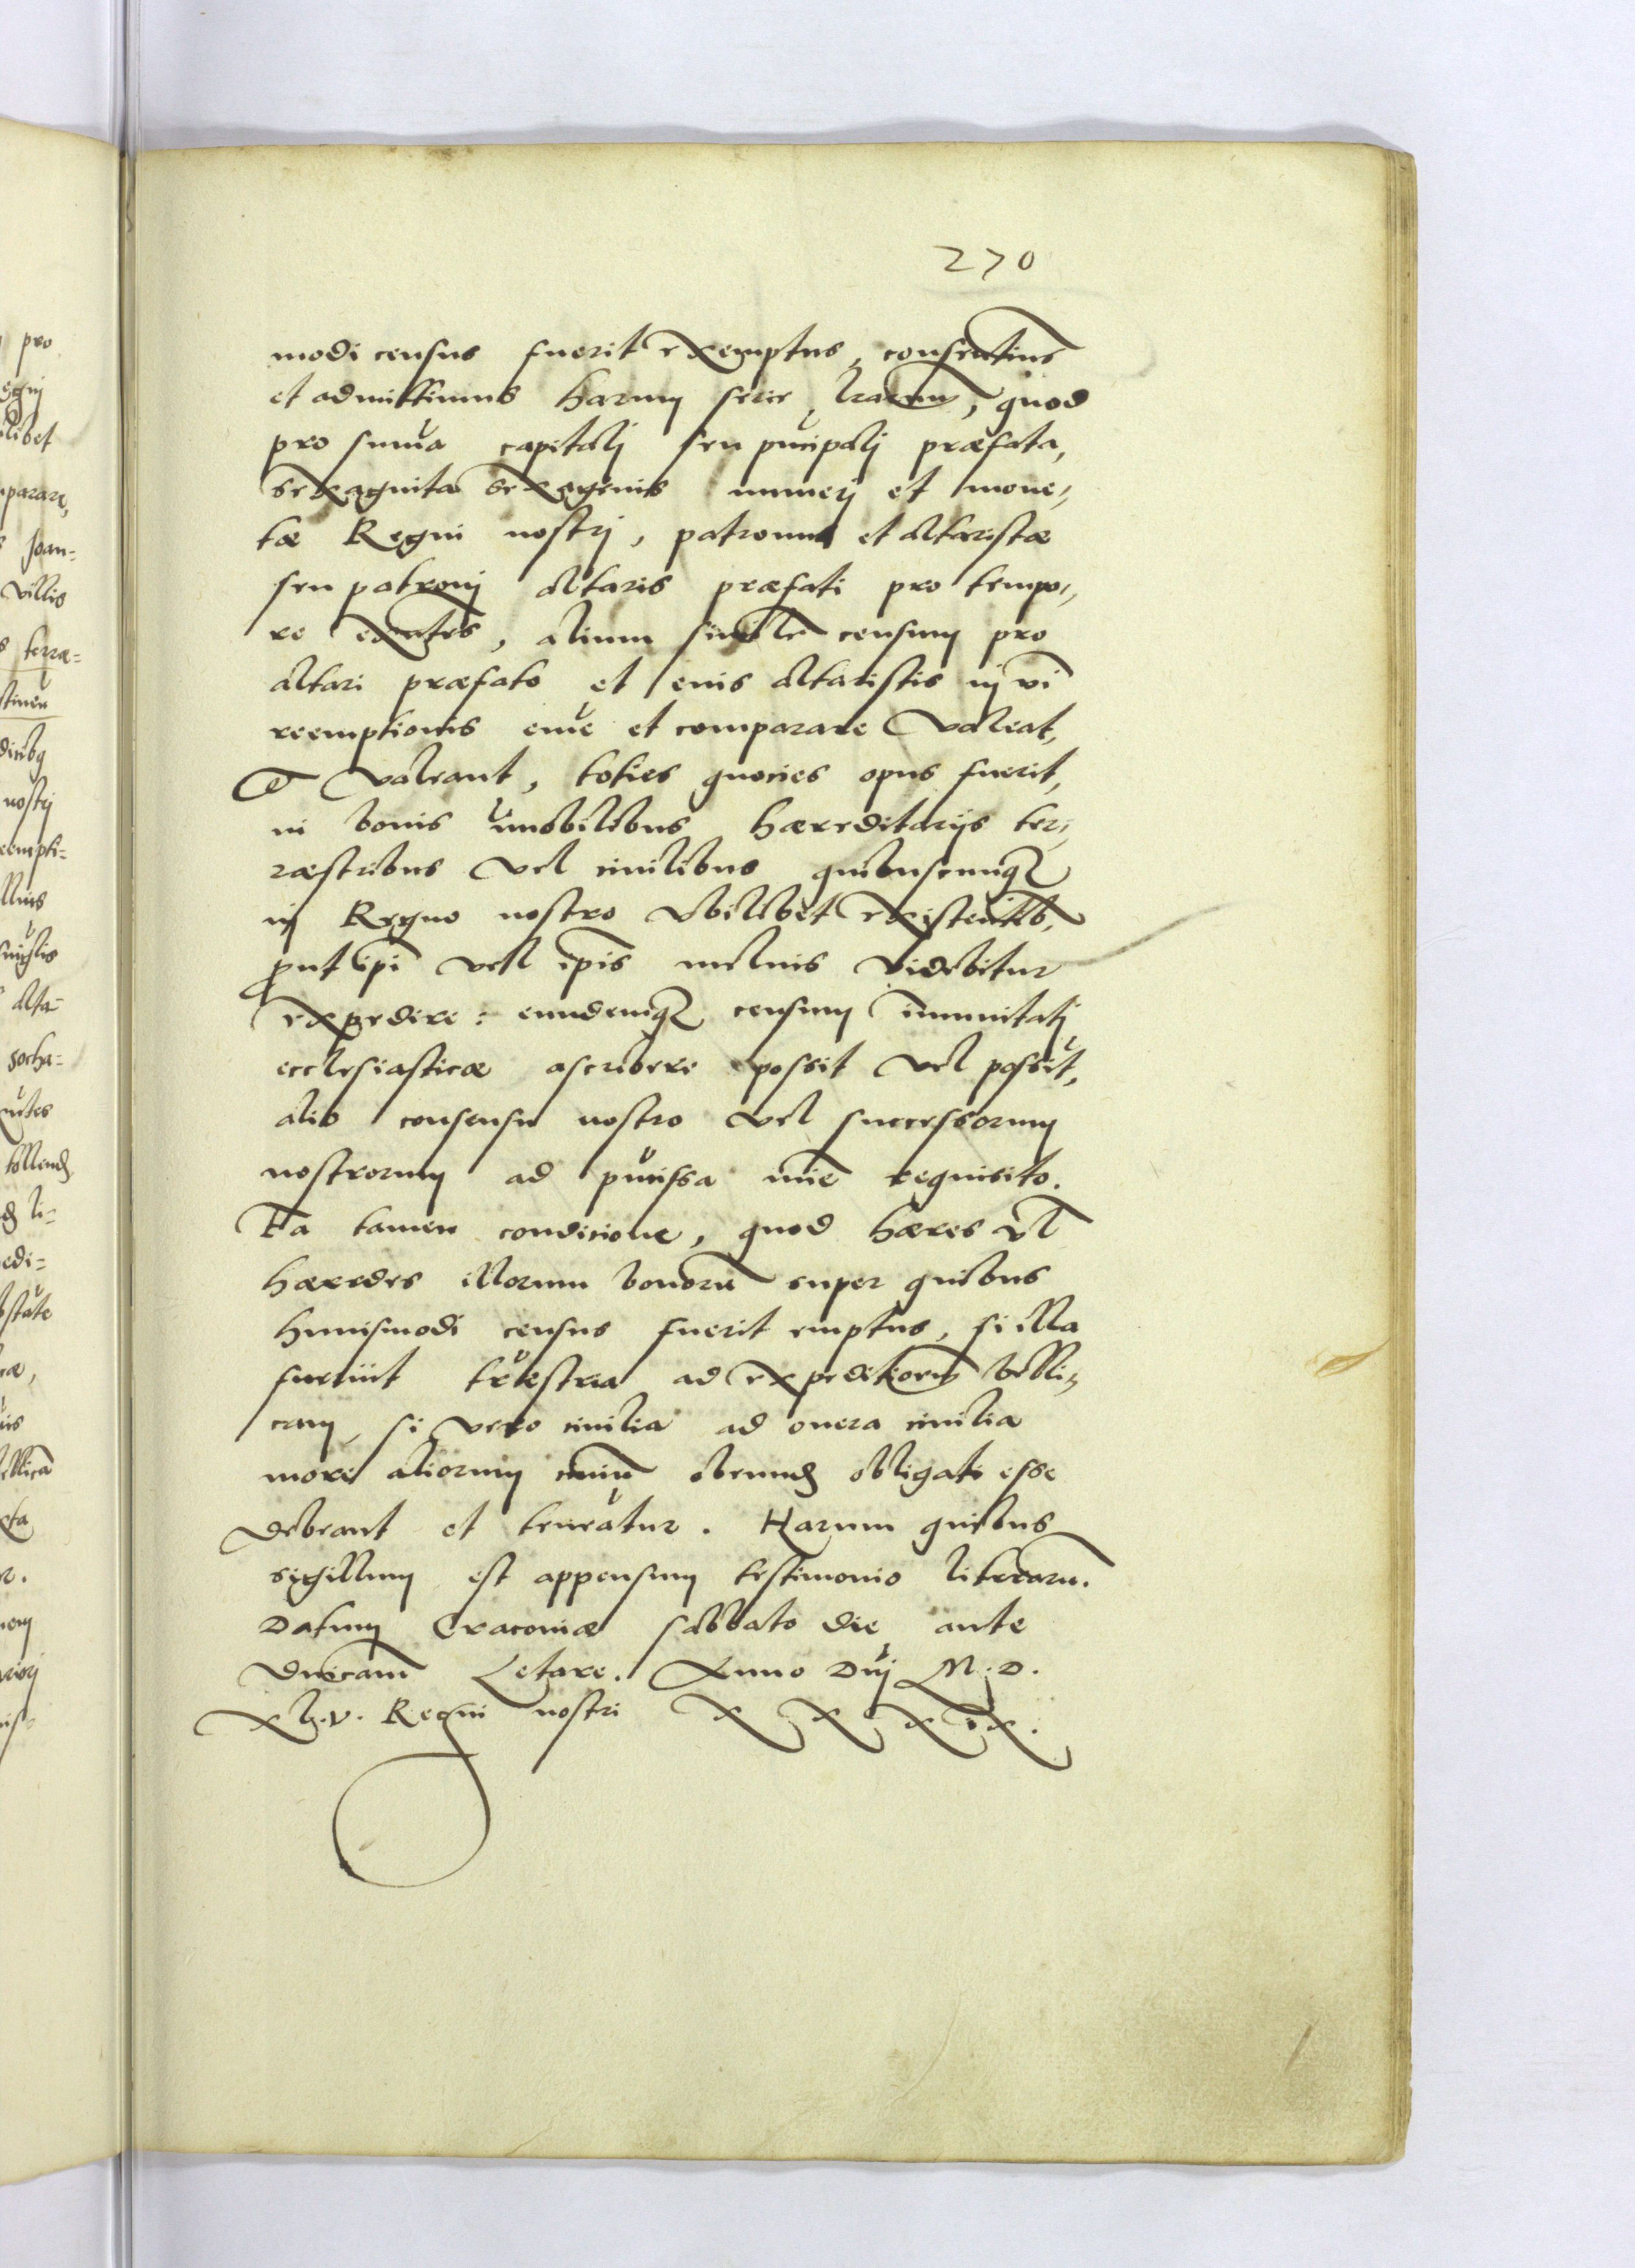 270
modi census fuerit exemptus, consentim9
et admittimus harum serie lrarum, quod
pro suma capitalj seu pncipalj præfata,
sexaginta sexagenis numerj et mone-
tæ Regni nostrj, patronus et altaristæ
seu patronj altaris præfati pro tempo-
re exntes, alium simile censum pro
altari præfato et eius altaristis in vi
reemptionis eme et comparare valeat,
valeant, toties quocies opus fuerit,
in bonis imobilibus hæreditarijs ter-
ræstribus vel civilibus quibuscumq
in Regno nostro ubilibet existentib,
put ipi vel ipis melius videbitur
expedire: eundemq censum imunitatj
ecclesiasticæ ascribere possit vel possit,
alio consensu nostro vel successorum
nostrorum ad pmissa mie requisito.
Ea tamen condicione, quod hæres vl
hæredes illorum bonoru super quibus
huiusmodi census fuerit emptus, si illa
fuerint trestria ad expeditionem belli-
cam, si vero civilia ad onera civilia
more aliorum civiu obeund obligati esse
debeant et teneatur. Harum quibus
sigillum est appensum testimonio literaru.
Datum Cracoviæ sabbato die ante
Dnicam Letare. Anno Dnj M.D.
XL.V. Regni nostri XXXIX.
pro
egnj
libet
parare,
Joan-
villis
terræ-
nostrj
eempti-
llius
alta-
socha-
li-
edi-